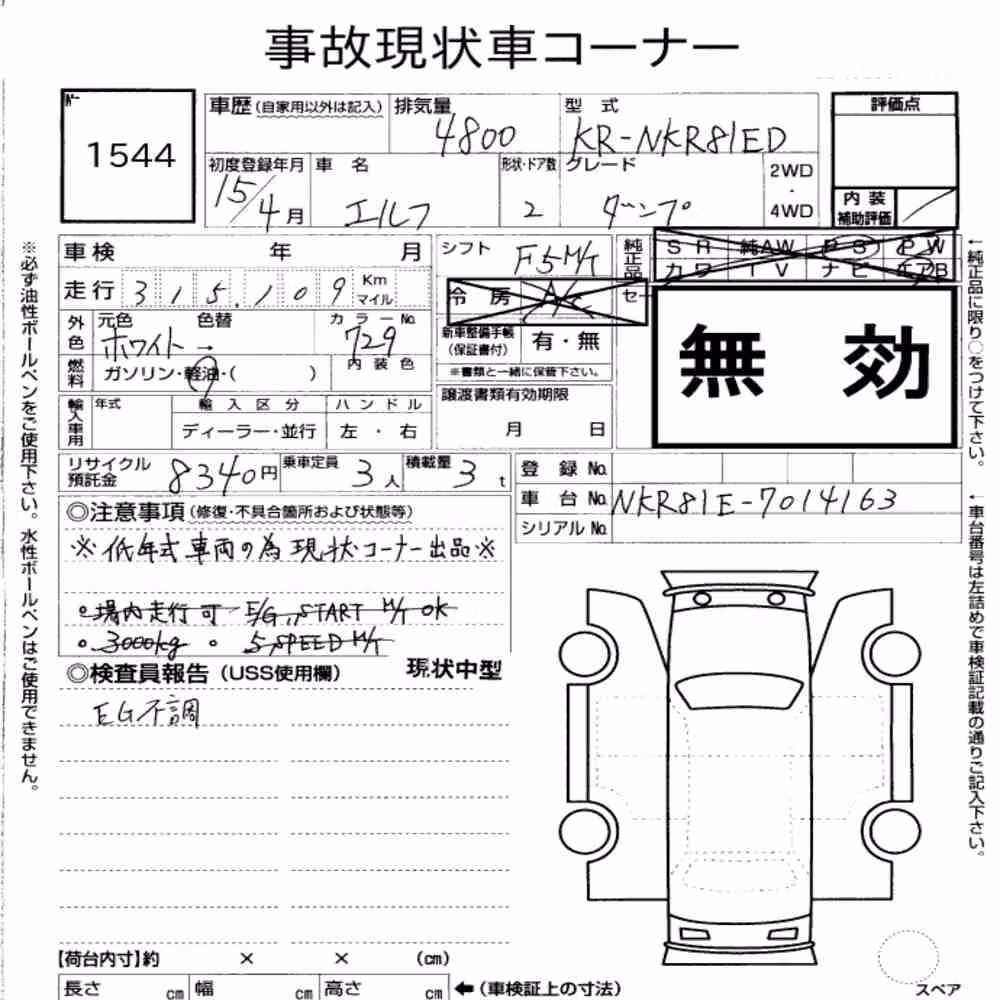 事故現状車コーナー
№
1544
車歴(自家用以外は記入)
排気量
4800
型 式
KR-NKR81ED
評価点
初度登録年月
15/4月
車 名
エルフ
形状・ドア数
2
グレード
ダンプ
2WD
・
4WD
内 装
補助評価
車検 年 月
シフト
F5M/T
純正品
SR 純AW PS PW
カワ TV ナビ エアB
走行 315,109 Km
マイル
冷 房 A/C
セ
外色
元色 色替 カラーNo.
ホワイト→ 729
新車整備手帳
(保証書付)
有・無
無 効
燃料
ガソリン・軽油・( )
内 装 色
※書類と一緒に保管下さい。
輸入車用
年式
輸 入 区 分
ハ ン ド ル
ディーラー・並行
左 ・ 右
譲渡書類有効期限
月 日
リサイクル
預託金
8340円
乗車定員
3人
積載量
3t
登 録 No.
車 台 No. NKR81E-7014163
シリアル No.
◎注意事項(修復・不具合箇所および状態等)
※低年式車両の為現状コーナー出品※
。場内走行可 E/G START M/T OK
。3000kg 。5SPEED M/T
◎検査員報告(USS使用欄) 現状中型
EG不調
【荷台内寸】約 × × (cm)
長さ cm 幅 cm 高さ cm ←(車検証上の寸法)
スペア
※必ず油性ボールペンをご使用下さい。水性ボールペンはご使用できません。
←純正品に限り○をつけて下さい。
←車台番号は左詰めで車検証記載の通りご記入下さい。